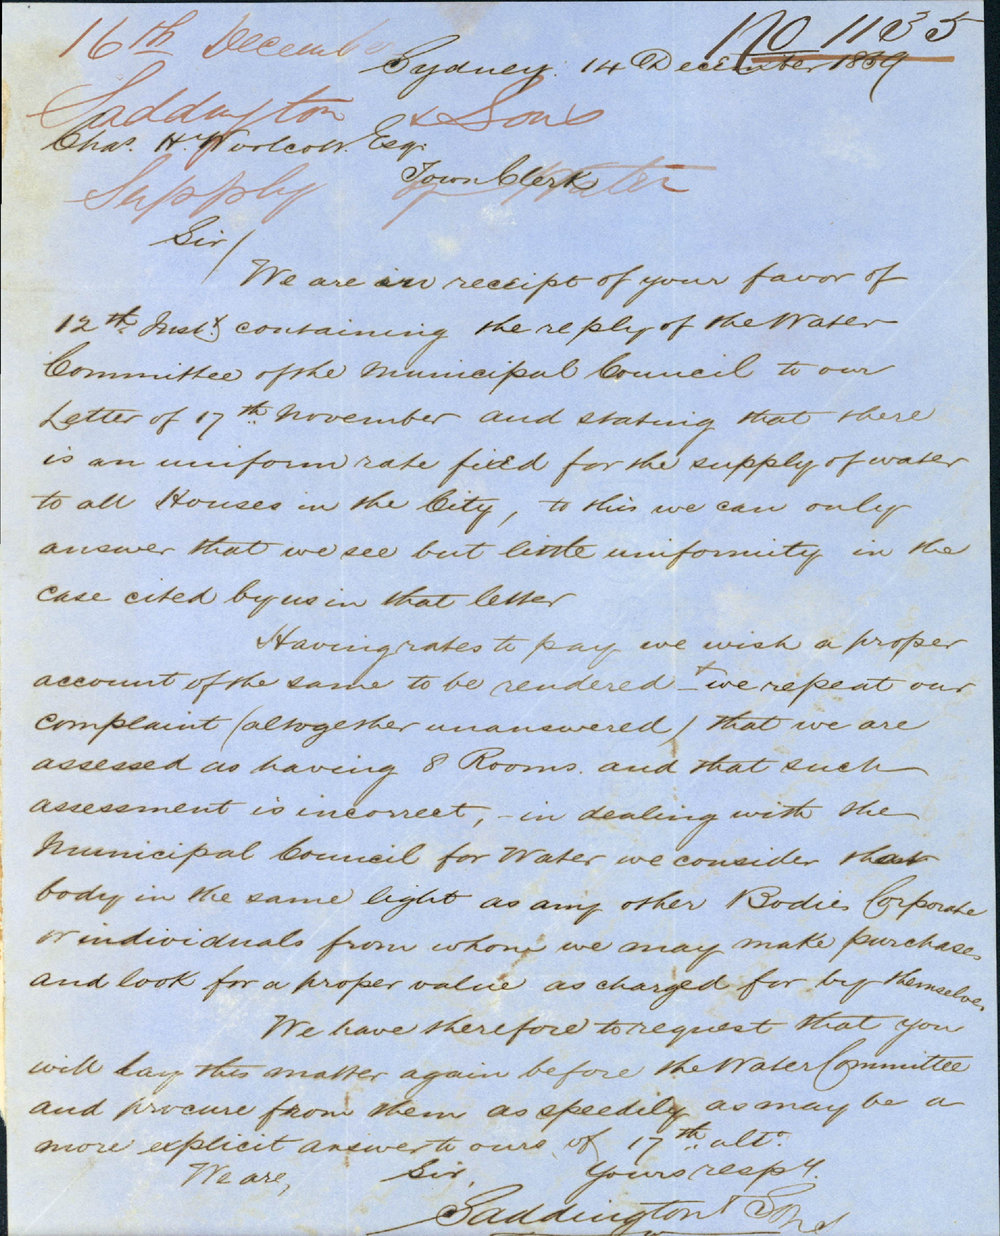 No 1135
16th December
Sydney. 14 December 1859
Saddington & Sons
Chas. H. Woolcott. Esq.
Town Clerk
Supply of Water
Sir/
We are in receipt of your favor of
12th. Inst. containing the reply of the Water
Committee of the Municipal Council to our
Letter of 17th November and stating that there
is an uniform rate fixed for the supply of water
to all Houses in the City, to this we can only
answer that we see but little uniformity in the
case cited by us in that letter
Having rates to pay we wish a proper
account of the same to be rendered - & we repeat our
complaint (altogether unanswered) that we are
assessed as having 8 Rooms. and that such
assessment is incorrect, - in dealing with the
Municipal Council for Water we consider that
body in the same light as any other Bodies Corporate
or individuals from whom we may make purchases
and look for a proper value as charged for by themselves.
We have therefore to request that you
will lay this matter again before the Water Committee
and procure from them as speedily as may be a
more explicit answer to ours of 17th ulto.
We are, Sir, Yours respy.
Saddington & Sons